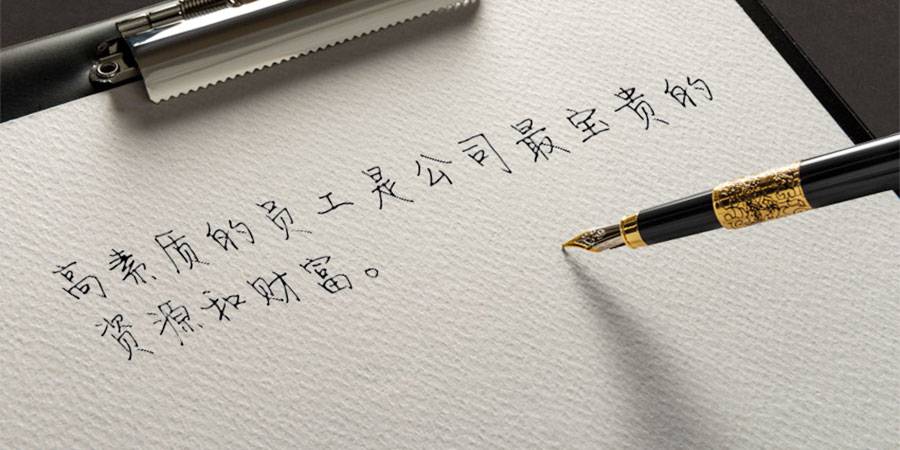 高素质的员工是公司最宝贵的
资源和财富。